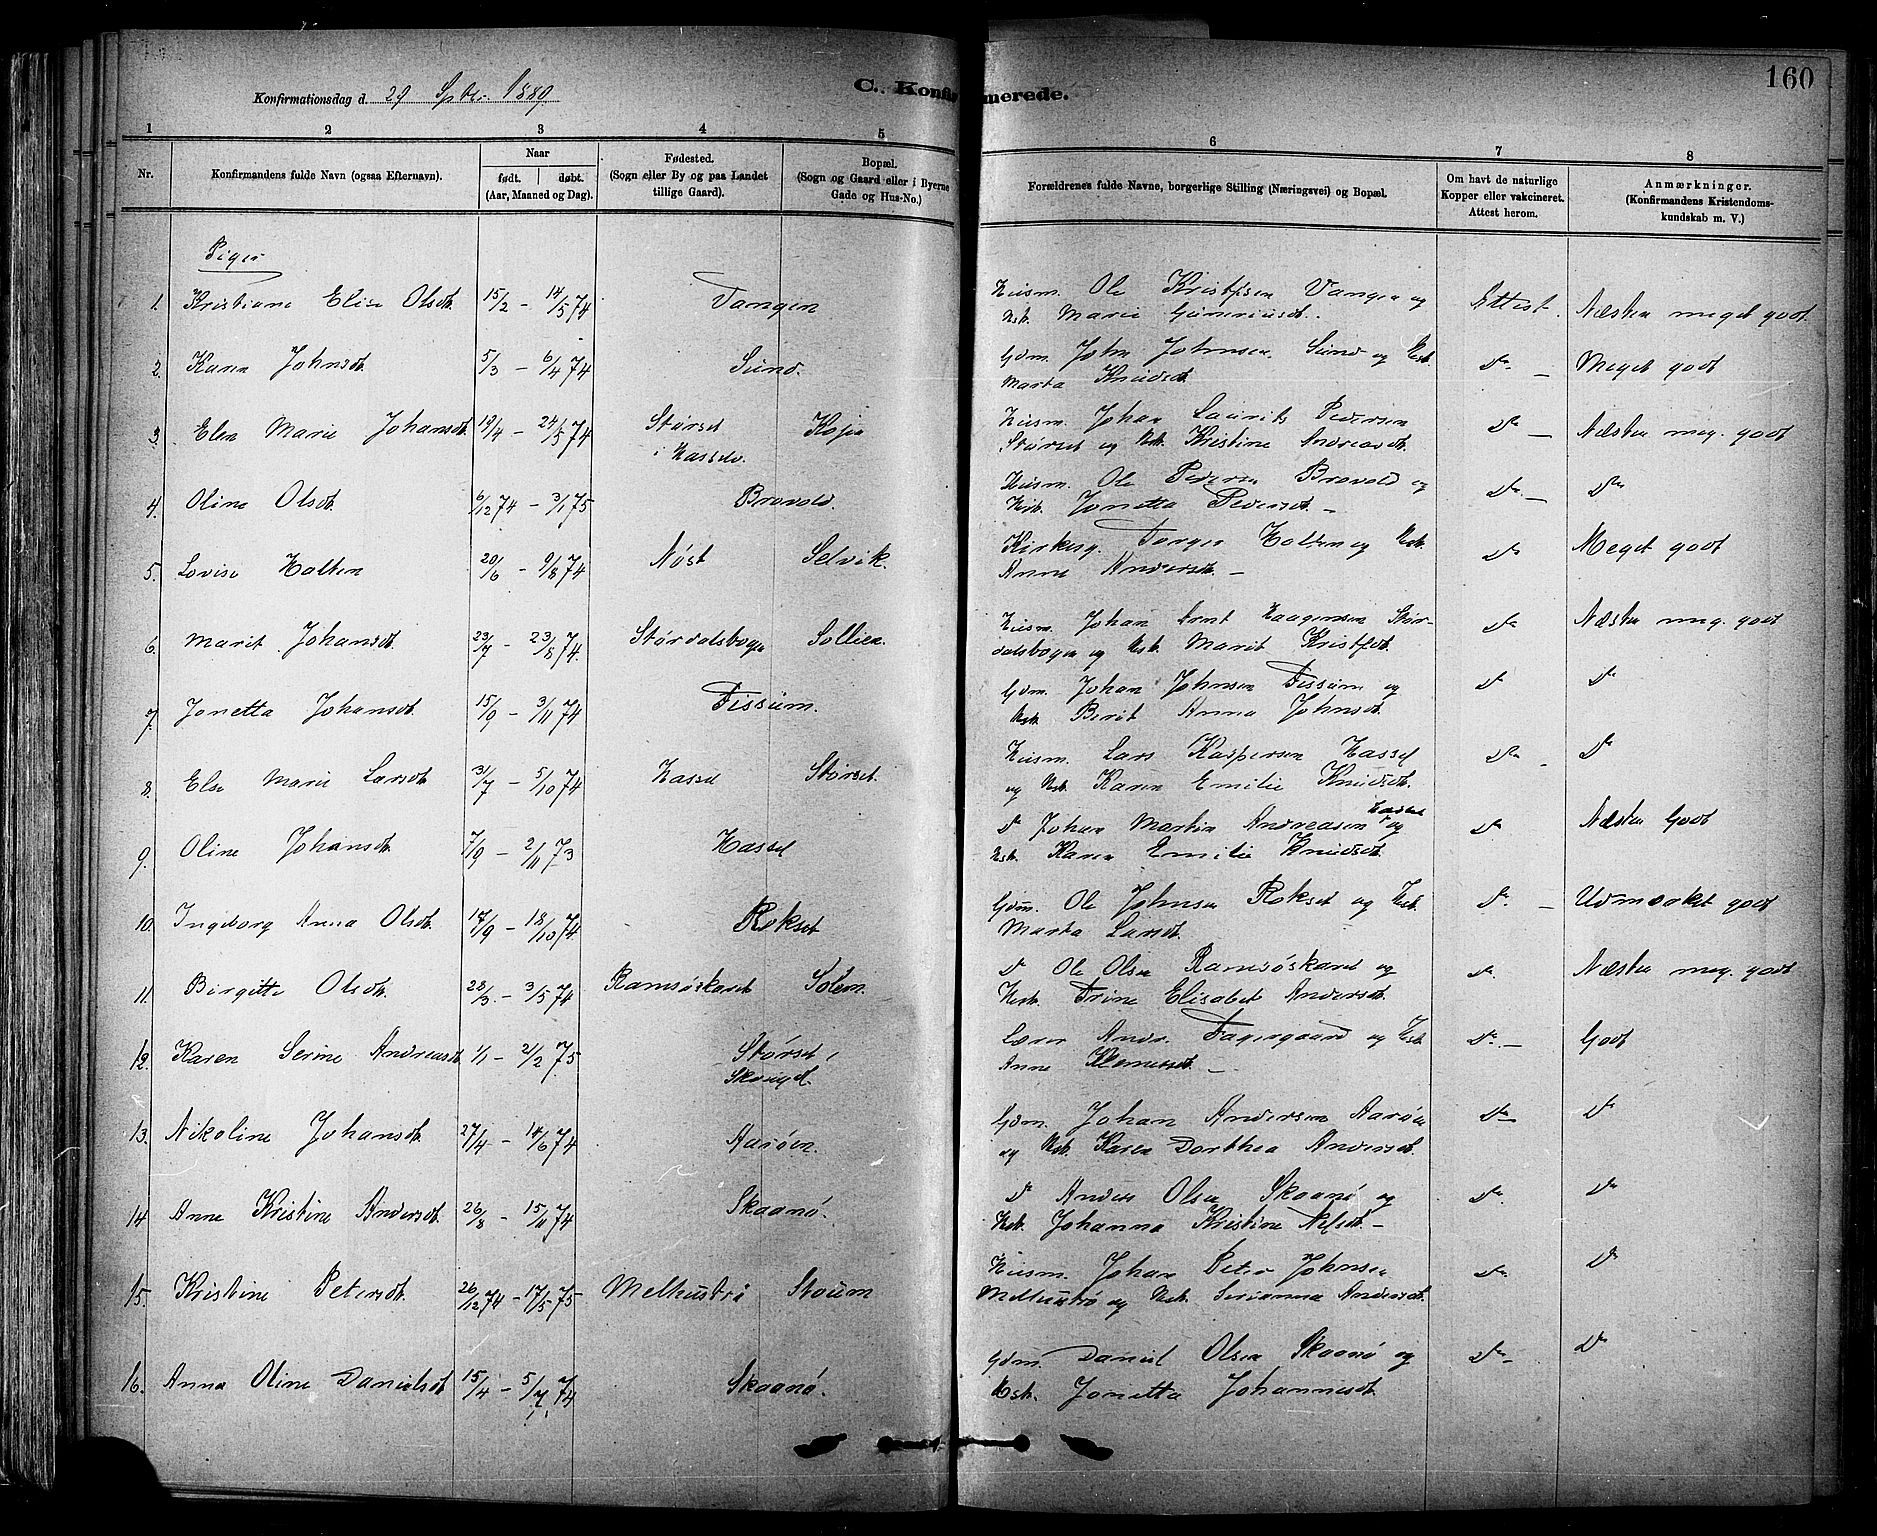 Konfirmationsdag d. 29 Septbr. 1889.
C. Konfirmerede.
160
1 2 3 4 5 6 7 8
Nr.
Konfirmandens fulde Navn (ogsaa Efternavn).
Naar
født. døbt.
(Aar, Maaned og Dag).
Fødested.
(Sogn eller By og paa Landet
tillige Gaard).
Bopæl.
(Sogn og Gaard eller i Byerne
Gade og Hus-No.)
Forældrenes fulde Navne, borgerlige Stilling (Næringsvei) og Bopæl.
Om havt de naturlige
Kopper eller vakcineret.
Attest herom.
Anmærkninger.
(Konfirmandens Kristendoms-
kundskab m. V.)
Piger
1. Kristiane Elise Olsdt. 15/2 - 14/5 74 Vangen Husm. Ole Kristfsen Vangen og Attest. Næsten meget godt.
Hst. Marie Guneriusdt.
2. Karen Johnsdt. 5/3 - 6/4 74 Sund. Gdm. John Johnsen Sund og Hst. Do - Meget godt
Marta Knudsdt.
3. Elen Marie Johansdt. 19/4 - 24/5 74 Størset Kojen Husm. Johan Laurits Pedersen Do - Næsten meg. godt
i Hasselv. Størset og Hst. Kristine Andreasdt.
4. Oline Olsdt. 6/12 74 - 3/1 75 Brovold. Husm. Ole Pedersen Brovold og Do - Do
Hst. Jonetta Pedersdt. -
5. Lovise Holten 20/6 - 9/8 74 Nøst Selvik. Kirkesg. Torger Holten og Hst. Do Meget godt
Anne Andersdt. -
6. Marit Johansdt. 23/7 - 23/8 74. Størdalsbogen Sollien. Husm. Johan Arnt Haagensen Stør- Do Næsten meg. godt
dalsbogen og Hst. Marit Kristfdt.
7. Jonetta Johansdt. 15/9 - 3/11 74 Fissum. Gdm. Johan Johnsen Fissum og Do Do
Hst. Berit Anna Johnsdt.
8. Else Marie Larsdt. 31/7 - 5/10 74 Hassel Størset. Husm. Lars Kaspersen Hassel Do - Do
og Hst. Karen Emilie Knudsdt.
9. Oline Johansdt. 7/9 - 2/11 73 Hassel Do Johan Martin Andreasen Hassel og Do Næsten Godt
Hst. Karen Emilie Knudsdt.
10. Ingeborg Anna Olsdt. 17/9 - 18/10 74. Rokset Gdm. Ole Johnsen Rokset og Hst. Do - Udmærket godt
Marta Larsdt.
11. Birgitte Olsdt. 28/3. - 3/5 74 Ramsøskaret Solem. Do Ole Olsen Ramsøskaret og Do. Næsten meg. godt
Hst. Trine Elisabet Andersdt.
12. Karen Serine Andreasdt 1/1 - 21/2 75 Størset, Lærer Andr. Fagergaard og Hst. Do. - Godt
Skougd. Anne Klemetsdt. -
13. Nikoline Johansdt. 27/4 - 14/6 74 Aarøen. Gdm. Johan Andersen Aarøen Do - Do
og Hst. Karen Dorthea Andersdt.
14. Anne Kristine Andersdt. 26/8 - 15/11 74 Skaanø. Do Anders Olsen Skaanø og Do. Do
Hst. Johanna Kristine Nilsdt. -
15. Kristine Petersdt. 26/12 74 - 17/5 75 Melhustrø Stoum Husm. Johan Peter Johnsen Do. Do
Melhustrø og Hst. Serianna Andersdt.
16. Anna Oline Danielsdt 15/4 - 5/7 74 Skaanø. Gdm. Daniel Olsen Skaanø og Do - Do
Hst. Jonetta Johannesdt.